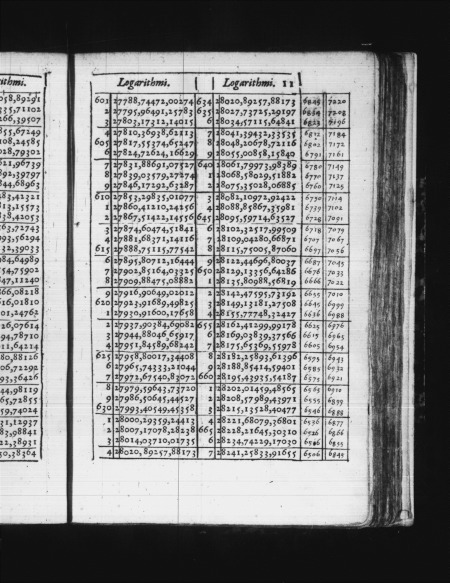 ithmi.
058,89291
335,71102
266,39507
855,67249
108,24585
028,79301
621,96739
892,39797
844,68963
483,42341
813,15573
838,42053
563,72743
993,56294
132,39033
984,64989
554,75902
847,11240
866,08218
616,01810
101,24762
326,07614
294,78710
011,64214
480,88126
706,72292
693,36426
444,98119
965,72855
259,74024
331,12937
183,98841
822,38931
250,38364
Logarithmi. | | Logarithmi. 11
601 27788,74472,00274 634 28020,89257,88173 6849 7220
2 27795,96491,25783 635 28027,73725,29197 6834 7208
3 27803,17312,14015 6 28034,57115,64841 6823 7196
4 27810,36938,62113 7 28041,39432,33535 6812 7184
605 27817,55374,65247 8 28048,20678,72116 6802 7172
6 27824,72624,16629 9 28055,00858,15840 6791 7161
7 27831,88691,07527 640 28061,79973,98389 6780 7149
8 27839,03579,27274 1 28068,58029,51882 6770 7137
9 27846,17292,63287 2 28075,35028,06885 6760 7125
610 27853,29835,01077 3 28082,10972,92422 6750 7114
1 27860,41210,24256 4 28088,85867,35981 6739 7102
2 27867,51422,14556 645 28095,59714,63527 6728 7091
3 27874,60474,51841 6 28102,32517,99509 6718 7079
4 27881,68371,14116 7 28109,04280,66871 6707 7067
615 27888,75115,77542 8 28115,75005,87060 6697 7056
6 27895,80712,16444 9 28122,44696,80037 6687 7045
7 27902,85164,03325 650 28129,13356,64286 6676 7033
8 27909,88475,08882 1 28135,80988,56819 6666 7022
9 27916,90649,02012 2 28142,47595,73192 6655 7010
620 27923,91689,49825 3 28149,13181,27508 6645 6999
1 27930,91600,17658 4 28155,77748,32427 6636 6988
2 27937,90384,69082 655 28162,41299,99178 6625 6976
3 27944,88046,65917 6 28169,03839,37566 6615 6965
4 27951,84589,68242 7 28175,65369,55978 6605 6954
625 27958,80017,34408 8 28182,25893,61396 6595 6943
6 27965,74333,21044 9 28188,85414,59401 6585 6932
7 27972,67540,83072 660 28195,43935,54187 6575 6921
8 27979,59643,73720 1 28202,01459,48565 6565 6910
9 27986,50645,44527 2 28208,57989,43971 6555 6899
630 27993,40549,45358 3 28215,13528,40477 6546 6888
1 28000,29359,24413 4 28221,68079,36801 6536 6877
2 28007,17078,28238 665 28228,21645,30310 6526 6866
3 28014,03710,01735 6 28234,74229,17030 6516 6855
4 28020,89257,88173 7 28241,25833,91655 6506 6845